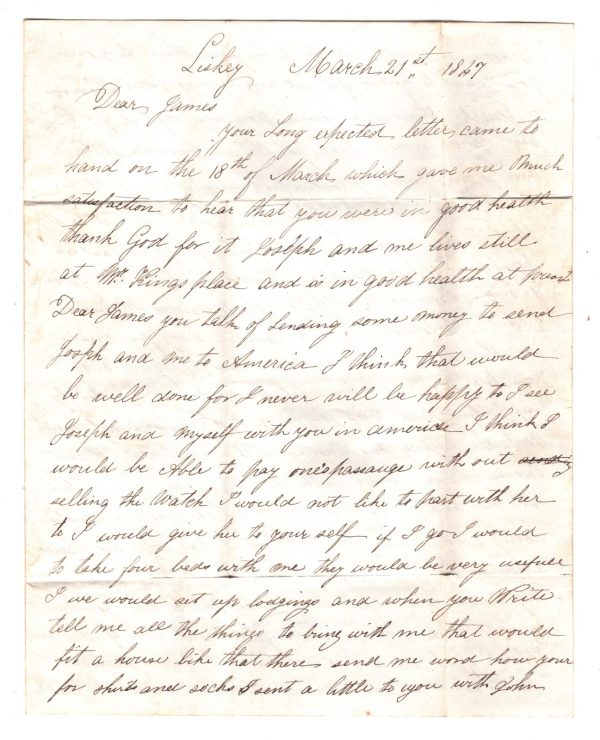 Liskey March 21st 1847
Dear James
your Long expected letter came to
hand on the 18th of March which gave me Much
satisfaction to hear that you were in good health
thank God for it Joseph and me lives still
at Mr Kings place and is in good health at preasnt
Dear James you talk of Sending some money to send
Joseph and me to America I think that would
be well done for I never will be happy to I see
Joseph and myself with you in america I think I
would be Able to pay one's passauge with out
selling the Watch I would not like to part with her
to I would give her to your self if I go I would
to take four beds with me they would be very usefull
I we would set up lodgings and when you Write
tell me all the things to bring with me that would
fit a house like that there send me word how your
for shirts and socks I sent a little to you with John